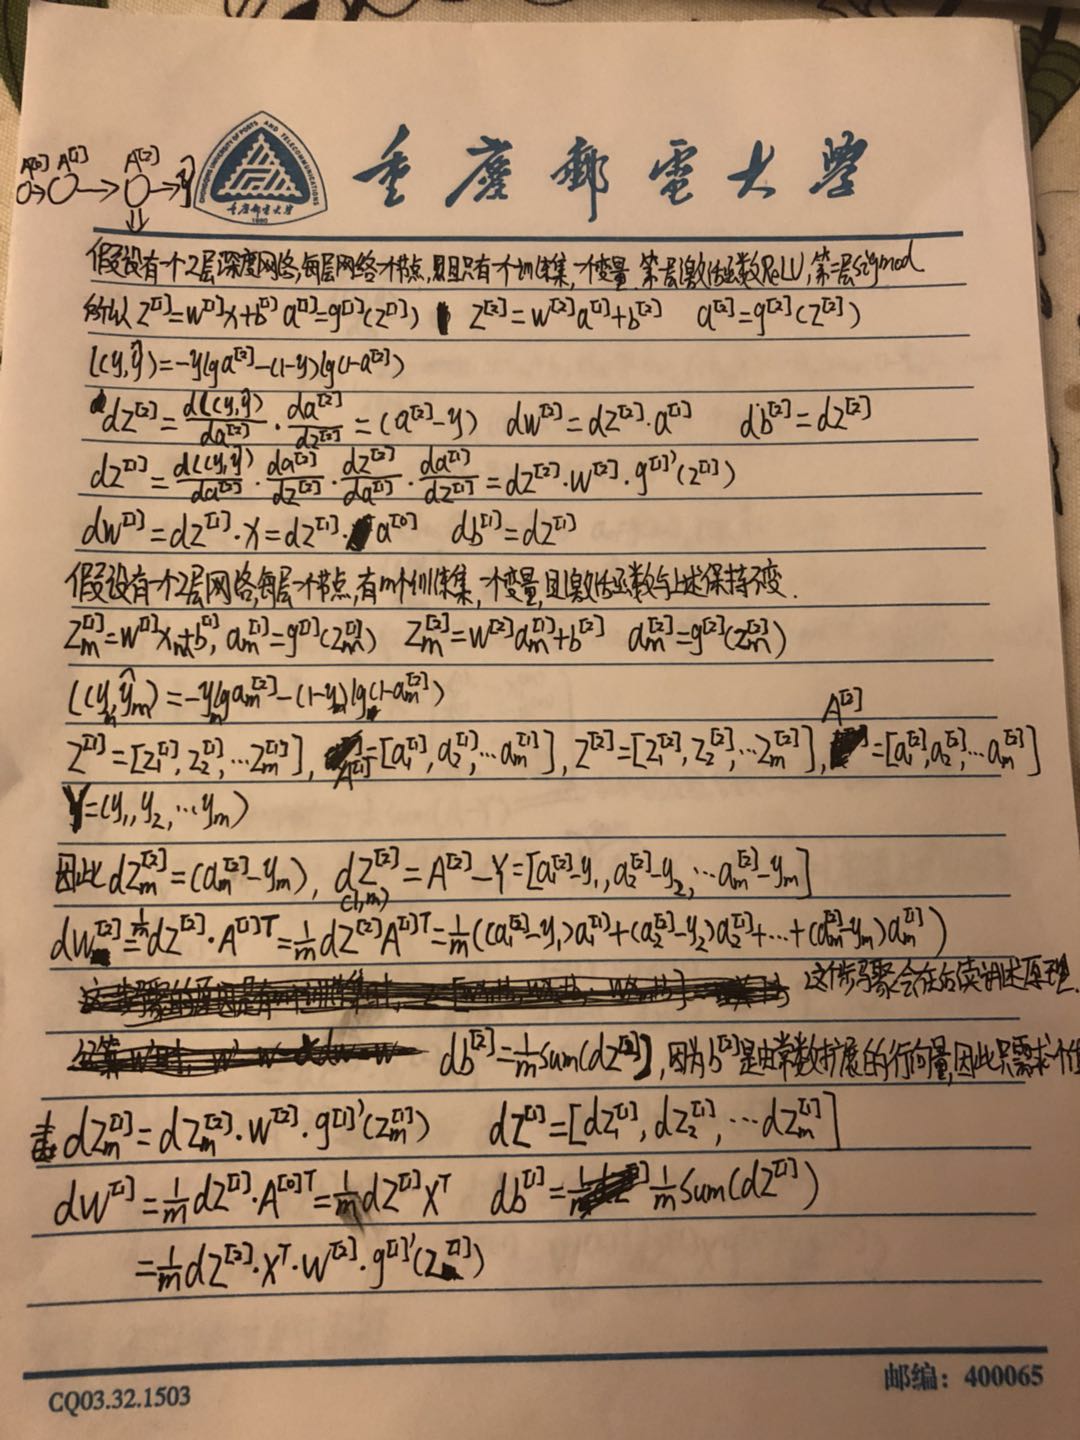 A^[0] A^[1] A^[2] ŷ
CHONGQING UNIVERSITY OF POSTS AND TELECOMMUNICATIONS
重庆邮电大学
1950
重慶郵電大學
假设有一个2层深度网络,每层网络一个节点,且只有一个训练集,一个变量,第一层激活函数ReLU,第二层sigmod
所以 Z^[1]=w^[1]x+b^[1] a^[1]=g^[1](Z^[1]) Z^[2]=w^[2]a^[1]+b^[2] a^[2]=g^[2](Z^[2])
L(y,ŷ)=-ylga^[2]-(1-y)lg(1-a^[2])
dZ^[2]=dL(y,ŷ)/da^[2]·da^[2]/dZ^[2]=(a^[2]-y) dw^[2]=dZ^[2]·a^[1] db^[2]=dZ^[2]
dZ^[1]=dL(y,ŷ)/da^[2]·da^[2]/dZ^[2]·dZ^[2]/da^[1]·da^[1]/dZ^[1]=dZ^[2]·w^[2]·g^[1]'(Z^[1])
dw^[1]=dZ^[1]·x=dZ^[1]·a^[0] db^[1]=dZ^[1]
假设有一个2层网络,每层一个节点,有m个训练集,一个变量,且激活函数与上述保持不变.
Z_m^[1]=w^[1]x_m+b^[1], a_m^[1]=g^[1](Z_m^[1]) Z_m^[2]=w^[2]a_m^[1]+b^[2] a_m^[2]=g^[2](Z_m^[2])
L(y_m,ŷ_m)=-y_m lg a_m^[2]-(1-y_m)lg(1-a_m^[2])
Z^[1]=[Z_1^[1],Z_2^[1],…Z_m^[1]], A^[1]=[a_1^[1],a_2^[1],…a_m^[1]], Z^[2]=[Z_1^[2],Z_2^[2],…Z_m^[2]], A^[2]=[a_1^[2],a_2^[2],…a_m^[2]]
Y=(y_1,y_2,…y_m)
因此dZ_m^[2]=(a_m^[2]-y_m), dZ^[2]=A^[2]-Y=[a_1^[2]-y_1,a_2^[2]-y_2,…a_m^[2]-y_m]
(1,m)
dw^[2]=1/m dZ^[2]·A^[1]T=1/m dZ^[2]A^[1]T=1/m((a_1^[2]-y_1)a_1^[1]+(a_2^[2]-y_2)a_2^[1]+…+(a_m^[2]-y_m)a_m^[1])
这个步骤会在后续讲述原理.
db^[2]=1/m sum(dZ^[2]),因为b^[2]是由常数扩展的行向量,因此只需求个
dZ_m^[1]=dZ_m^[2]·w^[2]·g^[1]'(Z_m^[1]) dZ^[1]=[dZ_1^[1],dZ_2^[1],…dZ_m^[1]]
dW^[1]=1/m dZ^[1]·A^[0]T=1/m dZ^[1]X^T db^[1]=1/m sum(dZ^[1])
=1/m dZ^[2]·X^T·W^[2]·g^[1]'(Z^[1])
CQ03.32.1503
邮编：400065